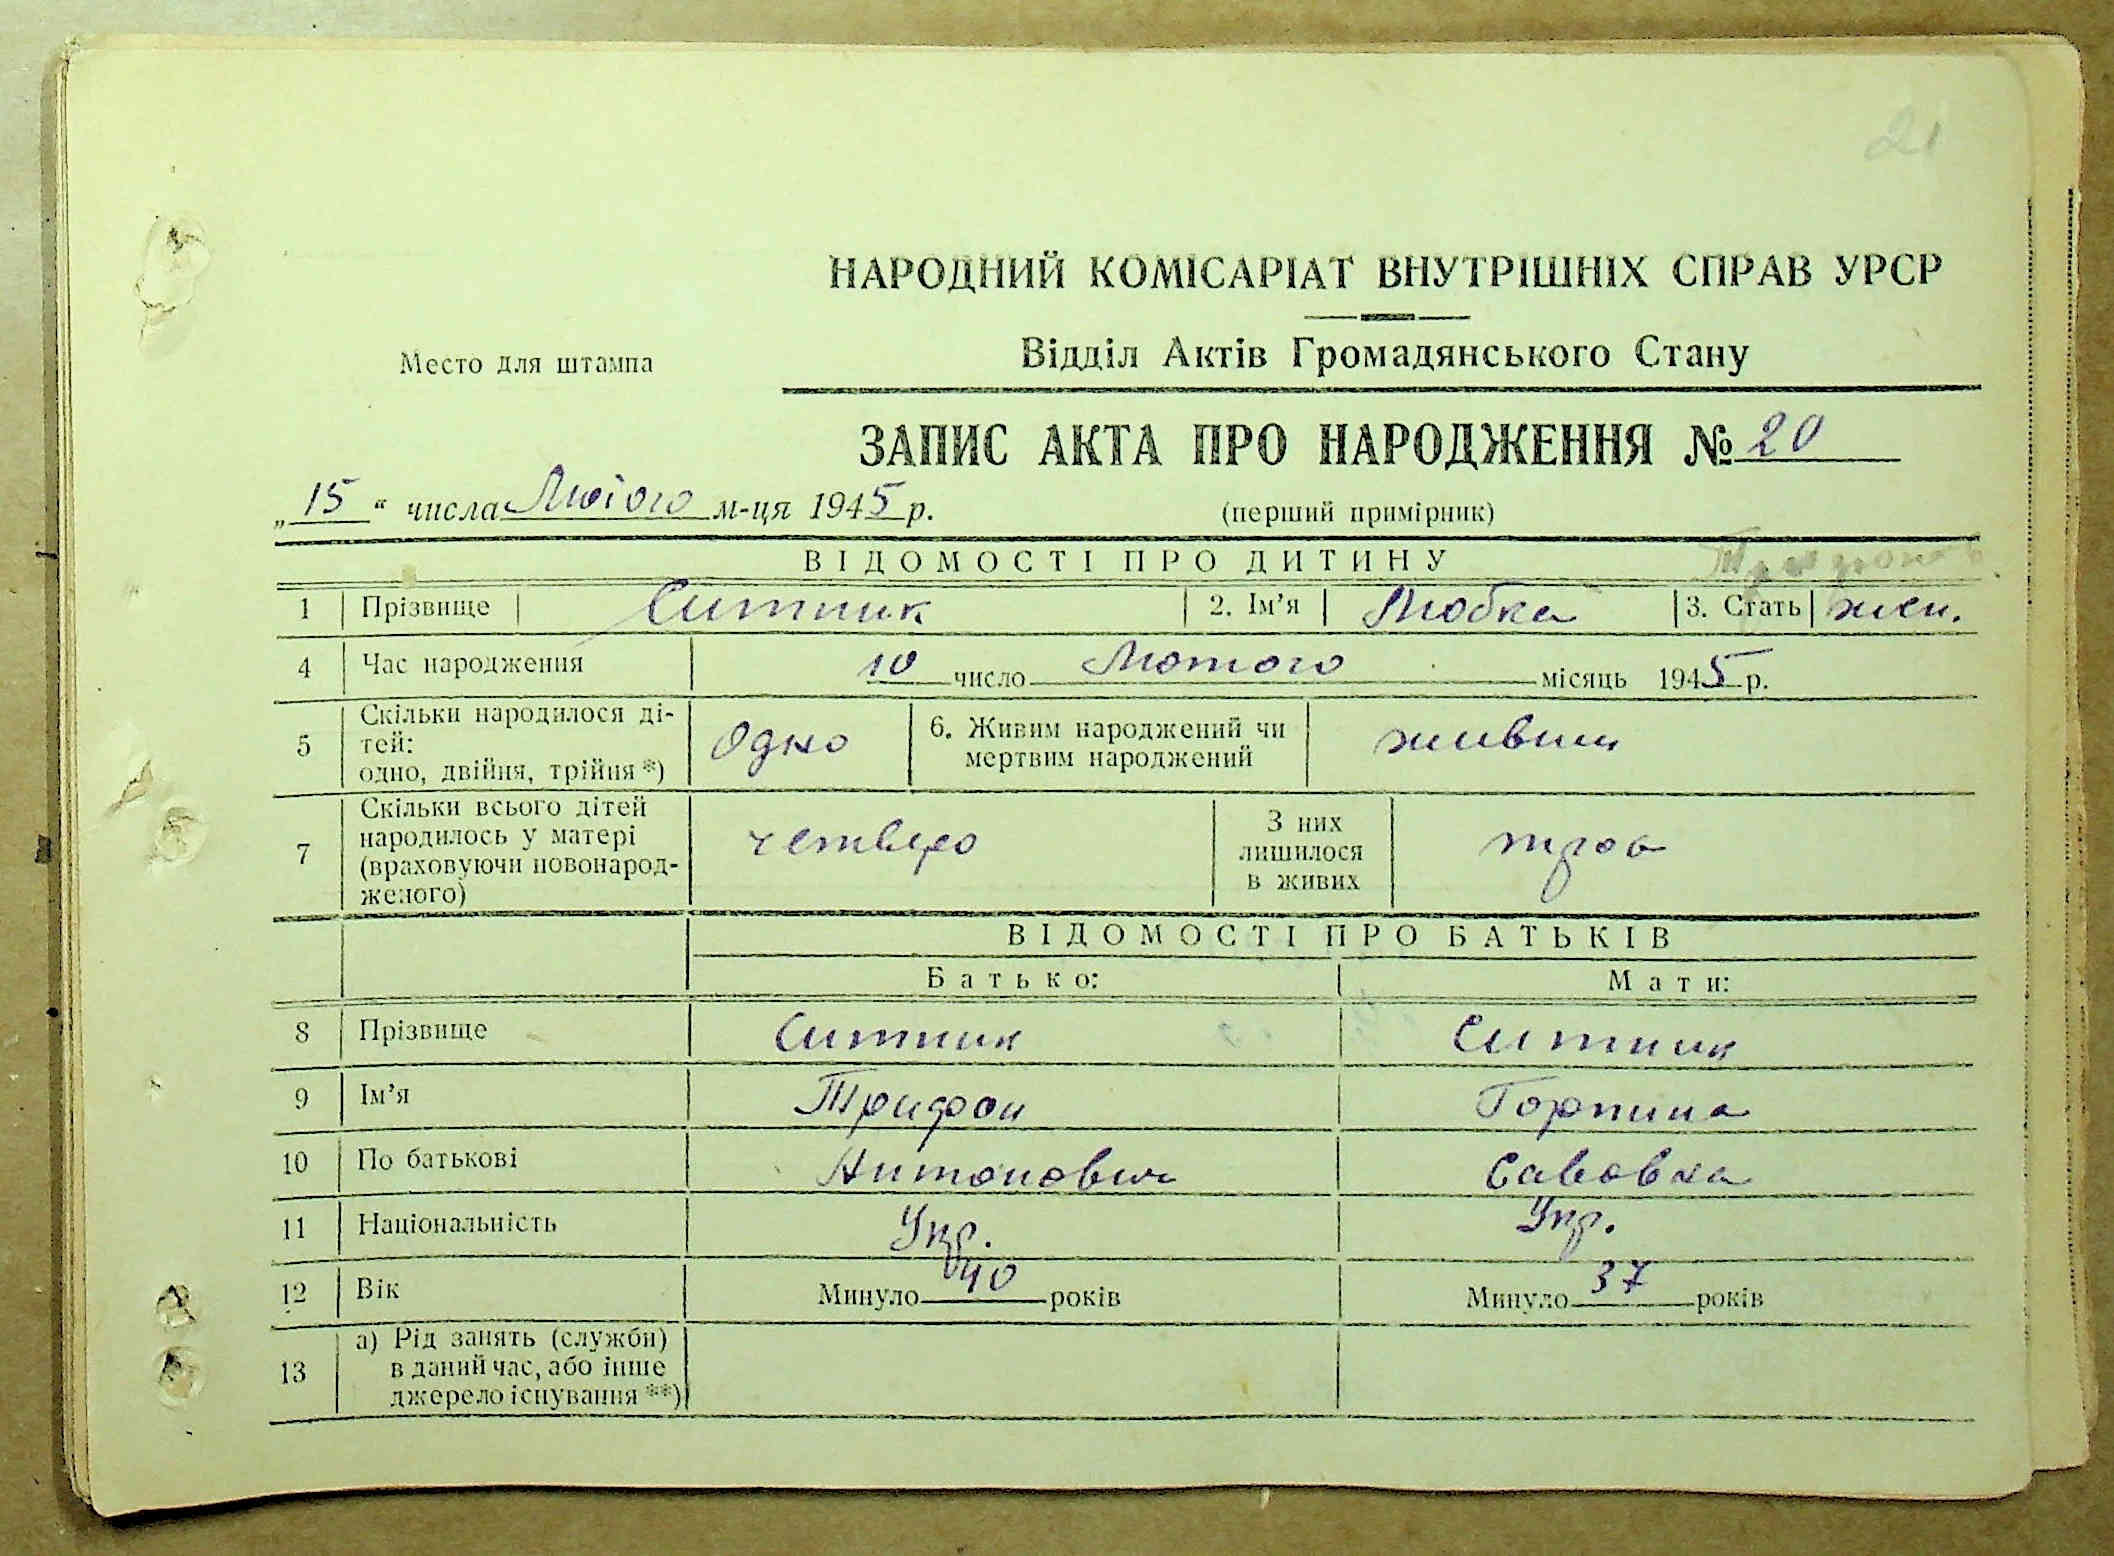 21
НАРОДНИЙ КОМІСАРІАТ ВНУТРІШНІХ СПРАВ УРСР
Место для штампа
Відділ Актів Громадянського Стану
ЗАПИС АКТА ПРО НАРОДЖЕННЯ № 20
„15“ числа Лютого м-ця 1945 р.
(перший примірник)
ВІДОМОСТІ ПРО ДИТИНУ
1 Прізвище Ситник 2. Ім’я Любка 3. Стать жен.
4 Час народження 10 число Лютого місяць 1945 р.
5 Скільки народилося ді-
тей:
одно, двійня, трійня *)
Одно
6. Живим народжений чи
мертвим народжений
живим
7 Скільки всього дітей
народилось у матері
(враховуючи новонарод-
женого)
четверо
З них
лишилося
в живих
троє
ВІДОМОСТІ ПРО БАТЬКІВ
Батько: Мати:
8 Прізвище Ситник Ситник
9 Ім’я Трифон Горпина
10 По батькові Антонович Савовна
11 Національність Укр. Укр.
12 Вік Минуло 40 років Минуло 37 років
13 а) Рід занять (служби)
в даний час, або інше
джерело існування **)